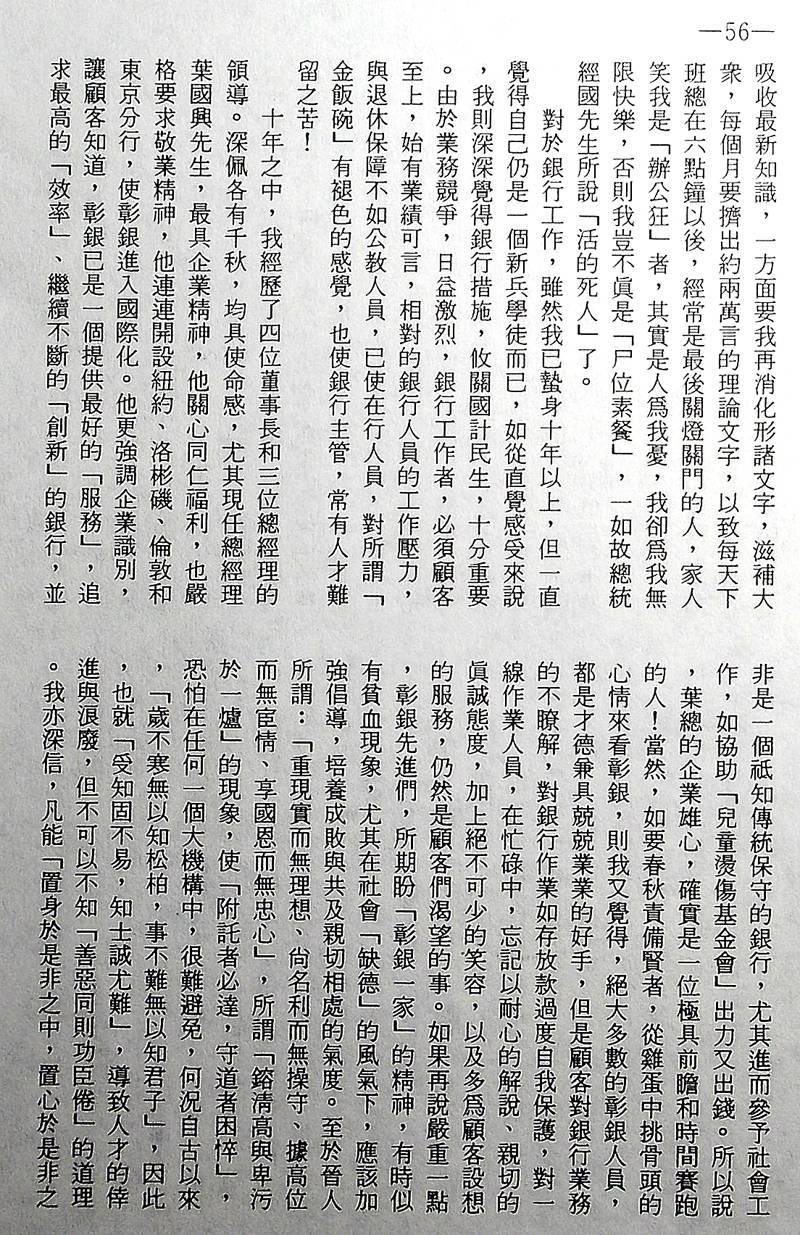 —56—
吸收最新知識，一方面要我再消化形諸文字，滋補大
衆，每個月要擠出約兩萬言的理論文字，以致每天下
班總在六點鐘以後，經常是最後關燈關門的人，家人
笑我是「辦公狂」者，其實是人爲我憂，我卻爲我無
限快樂，否則我豈不眞是「尸位素餐」，一如故總統
經國先生所說「活的死人」了。
對於銀行工作，雖然我已蟄身十年以上，但一直
覺得自己仍是一個新兵學徒而已，如從直覺感受來說
，我則深深覺得銀行措施，攸關國計民生，十分重要
。由於業務競爭，日益激烈，銀行工作者，必須顧客
至上，始有業績可言，相對的銀行人員的工作壓力，
與退休保障不如公教人員，已使在行人員，對所謂「
金飯碗」有褪色的感覺，也使銀行主管，常有人才難
留之苦！
十年之中，我經歷了四位董事長和三位總經理的
領導。深佩各有千秋，均具使命感，尤其現任總經理
葉國興先生，最具企業精神，他關心同仁福利，也嚴
格要求敬業精神，他連連開設紐約、洛彬磯、倫敦和
東京分行，使彰銀進入國際化。他更強調企業識別，
讓顧客知道，彰銀已是一個提供最好的「服務」，追
求最高的「效率」、繼續不斷的「創新」的銀行，並
非是一個祗知傳統保守的銀行，尤其進而參予社會工
作，如協助「兒童燙傷基金會」出力又出錢。所以說
，葉總的企業雄心，確實是一位極具前瞻和時間賽跑
的人！當然，如要春秋責備賢者，從雞蛋中挑骨頭的
心情來看彰銀，則我又覺得，絕大多數的彰銀人員，
都是才德兼具兢兢業業的好手，但是顧客對銀行業務
的不瞭解，對銀行作業如存放款過度自我保護，對一
線作業人員，在忙碌中，忘記以耐心的解說、親切的
眞誠態度，加上絕不可少的笑容，以及多爲顧客設想
的服務，仍然是顧客們渴望的事。如果再說嚴重一點
，彰銀先進們，所期盼「彰銀一家」的精神，有時似
有貧血現象，尤其在社會「缺德」的風氣下，應該加
強倡導，培養成敗與共及親切相處的氣度。至於晉人
所謂：「重現實而無理想、尙名利而無操守、據高位
而無宦情、享國恩而無忠心」，所謂「鎔淸高與卑污
於一爐」的現象，使「附託者必達，守道者困悴」，
恐怕在任何一個大機構中，很難避免，何況自古以來
，「歲不寒無以知松柏，事不難無以知君子」，因此
，也就「受知固不易，知士誠尤難」，導致人才的倖
進與浪廢，但不可以不知「善惡同則功臣倦」的道理
。我亦深信，凡能「置身於是非之中，置心於是非之